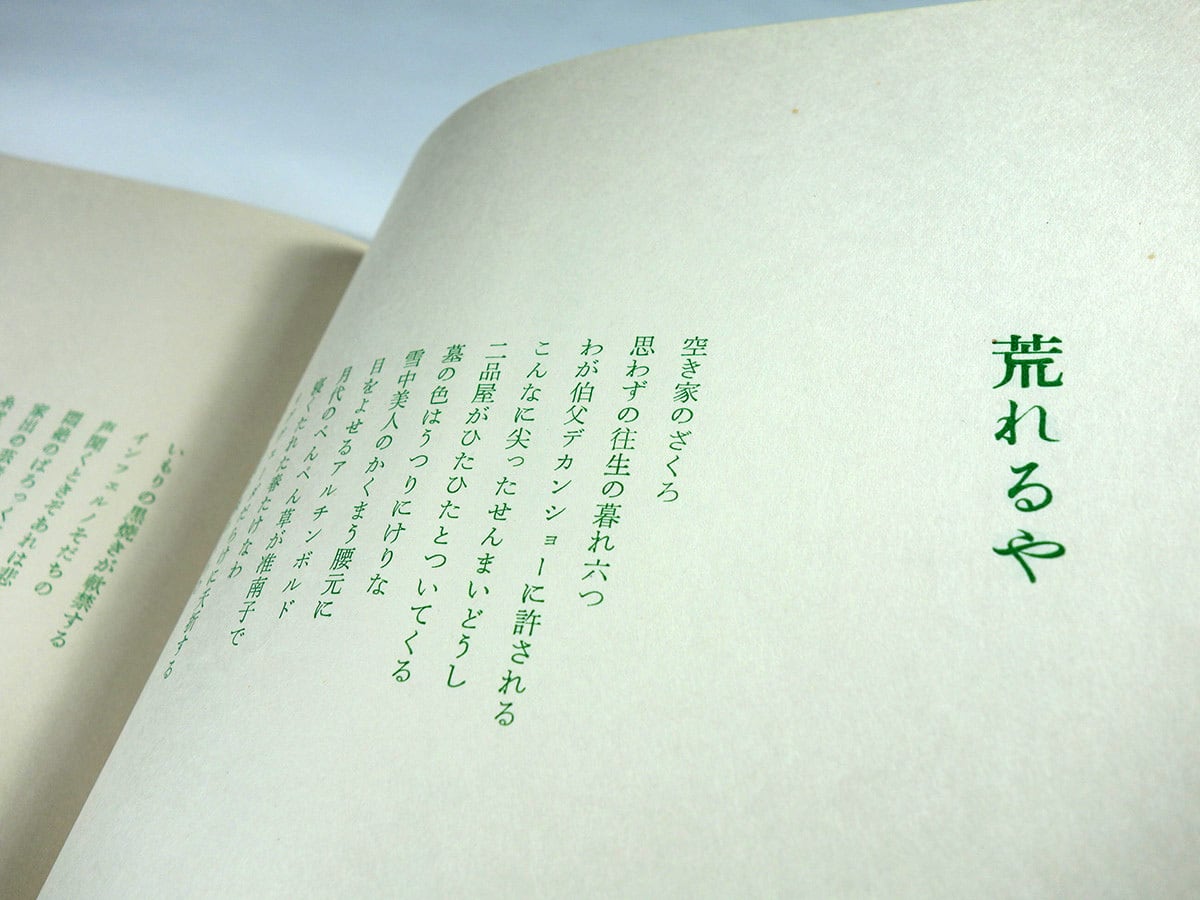 荒れるや
空き家のざくろ
思わずの往生の暮れ六つ
わが伯父デカンショーに許される
こんなに尖ったせんまいどうし
二品屋がひたひたとついてくる
墓の色はうつりにけりな
雪中美人のかくまう腰元に
日をよせるアルチンボルド
月代のぺんぺん草が准南子で
寝くたれた春たけなわ
だらけに夭折する
いもりの黒焼きが軟禁する
インフェルノそだちの
声聞くときぞあれは悲
悶絶のばあっく
家出の